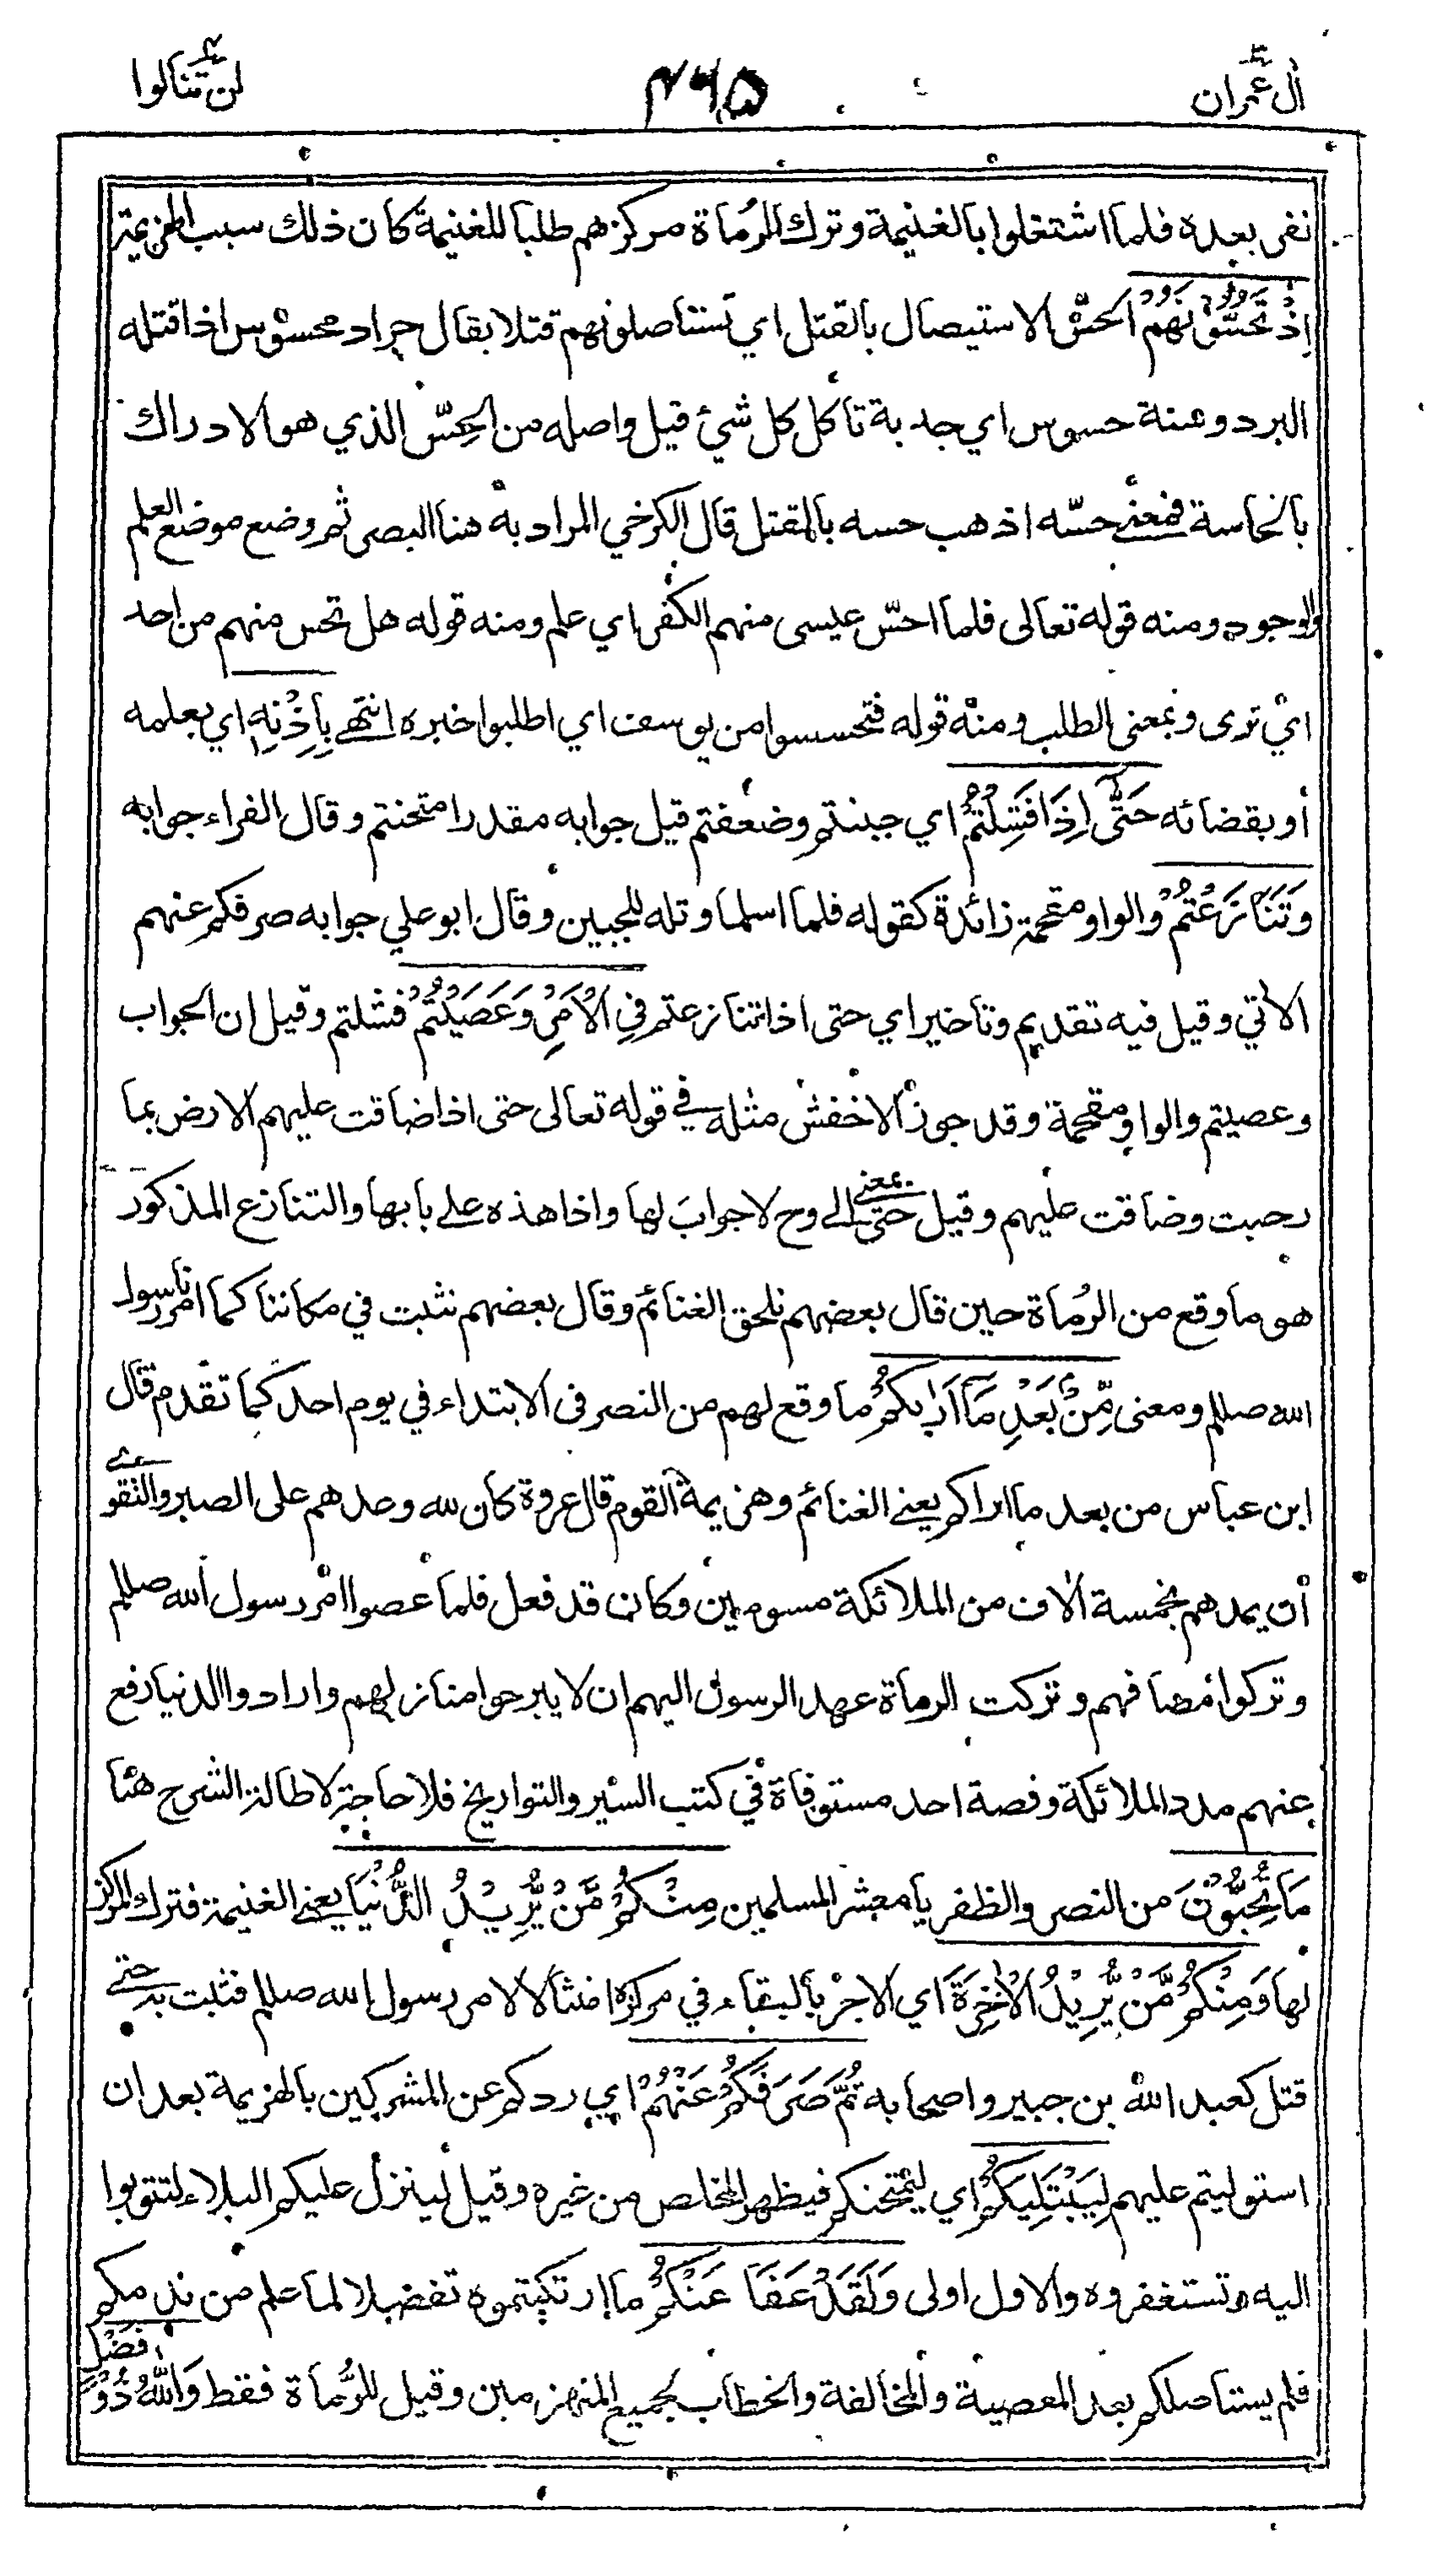 اٰل عمران
۴۶۵
لن تنالوا ۴
نفى بعده فلما اشتغلوا بالغنيمة وترك الرُماة مركزهم طلبا للغنيمة كان ذلك سبب الهزيمة
اِذْ تَحُسُّوْنَهُمْ الحسّ الاستيصال بالقتل اي تستاصلونهم قتلا يقال جراد محسوس اذا قتله
البرد وسنة حسوس اي جدبة تاكل كل شئ قيل واصله من الحِسّ الذي هو الادراك
بالحاسة فمعنے حسّه اذهب حسه بالقتل قال الكرخي المراد به هنا البصر ثم وضع موضع العلم
والوجود ومنه قوله تعالى فلما احسّ عيسى منهم الكفر اي علم ومنه قوله هل تحس منهم من احد
اي ترى وبمعنى الطلب ومنه قوله فتحسسوا من يوسف اي اطلبوا خبره انتهے بِاِذْنِهٖ اي بعلمه
أو بقضائه حَتّٰى اِذَا فَشِلْتُمْ اي جبنتم وضعفتم قيل جوابه مقدر امتحنتم وقال الفراء جوابه
وَتَنَازَعْتُمْ والواو مقحمة زائدة كقوله فلما اسلما وتله للجبين وقال ابو علي جوابه صرفكم عنهم
الاٰتي وقيل فيه تقديم وتاخير اي حتى اذا تنازعتم فِي الْاَمْرِ وَعَصَيْتُمْ فشلتم وقيل ان الجواب
وعصيتم والواو مقحمة وقد جوز الاخفش مثله في قوله تعالى حتى اذا ضاقت عليهم الارض بما
رحبت وضاقت عليهم وقيل حتى بمعنے الے وح لا جوابَ لها واذا هذه علے بابها والتنازع المذكور
هو ما وقع من الرُماة حين قال بعضهم نلحق الغنائم وقال بعضهم نثبت في مكاننا كما امرنا رسول
الله صللم ومعنى مِّنْ بَعْدِ مَآ اَرٰىكُمْ ما وقع لهم من النصر فى الابتداء في يوم احد كما تقدم قال
ابن عباس من بعد ما اراكم يعنے الغنائم وهزيمة القوم قال عروة كان لله وعدهم على الصبر والتقوى
أن يمدهم بخمسة اٰلاف من الملائكة مسومين وكان قد فعل فلما عصوا امر رسول الله صللم
وتركوا مصافهم وتركت الرماة عهد الرسول اليهم ان لا يبرحوا منازلهم وارادوا الدنيا رفع
عنهم مدد الملائكة وقصة احد مستوفاة في كتب السير والتواريخ فلا حاجة لاطالة الشرح هنا
مَا تُحِبُّوْنَ من النصر والظفر يا معشر المسلمين مِنْكُمْ مَّنْ يُّرِيْدُ الدُّنْيَا يعنے الغنيمة فترك المركز
لها وَمِنْكُمْ مَّنْ يُّرِيْدُ الْاٰخِرَةَ اي الاجر بالبقاء في مركزه امتثالا لامر رسول الله صللم فثبت به حتے
قتل كعبد الله بن جبير واصحابه ثُمَّ صَرَفَكُمْ عَنْهُمْ اي ردكم عن المشركين بالهزيمة بعد ان
استوليتم عليهم لِيَبْتَلِيَكُمْ اي ليمتحنكم فيظهر المخلص من غيره وقيل لينزل عليكم البلاء لتتوبوا
اليه وتستغفروه والاول اولى وَلَقَدْ عَفَا عَنْكُمْ ما ارتكبتموه تفضلا لما علم من ندمكم
فلم يستاصلكم بعد المعصية والمخالفة والخطاب لجميع المنهزمين وقيل للرُّماة فقط وَاللّٰهُ ذُوْ فَضْلٍ